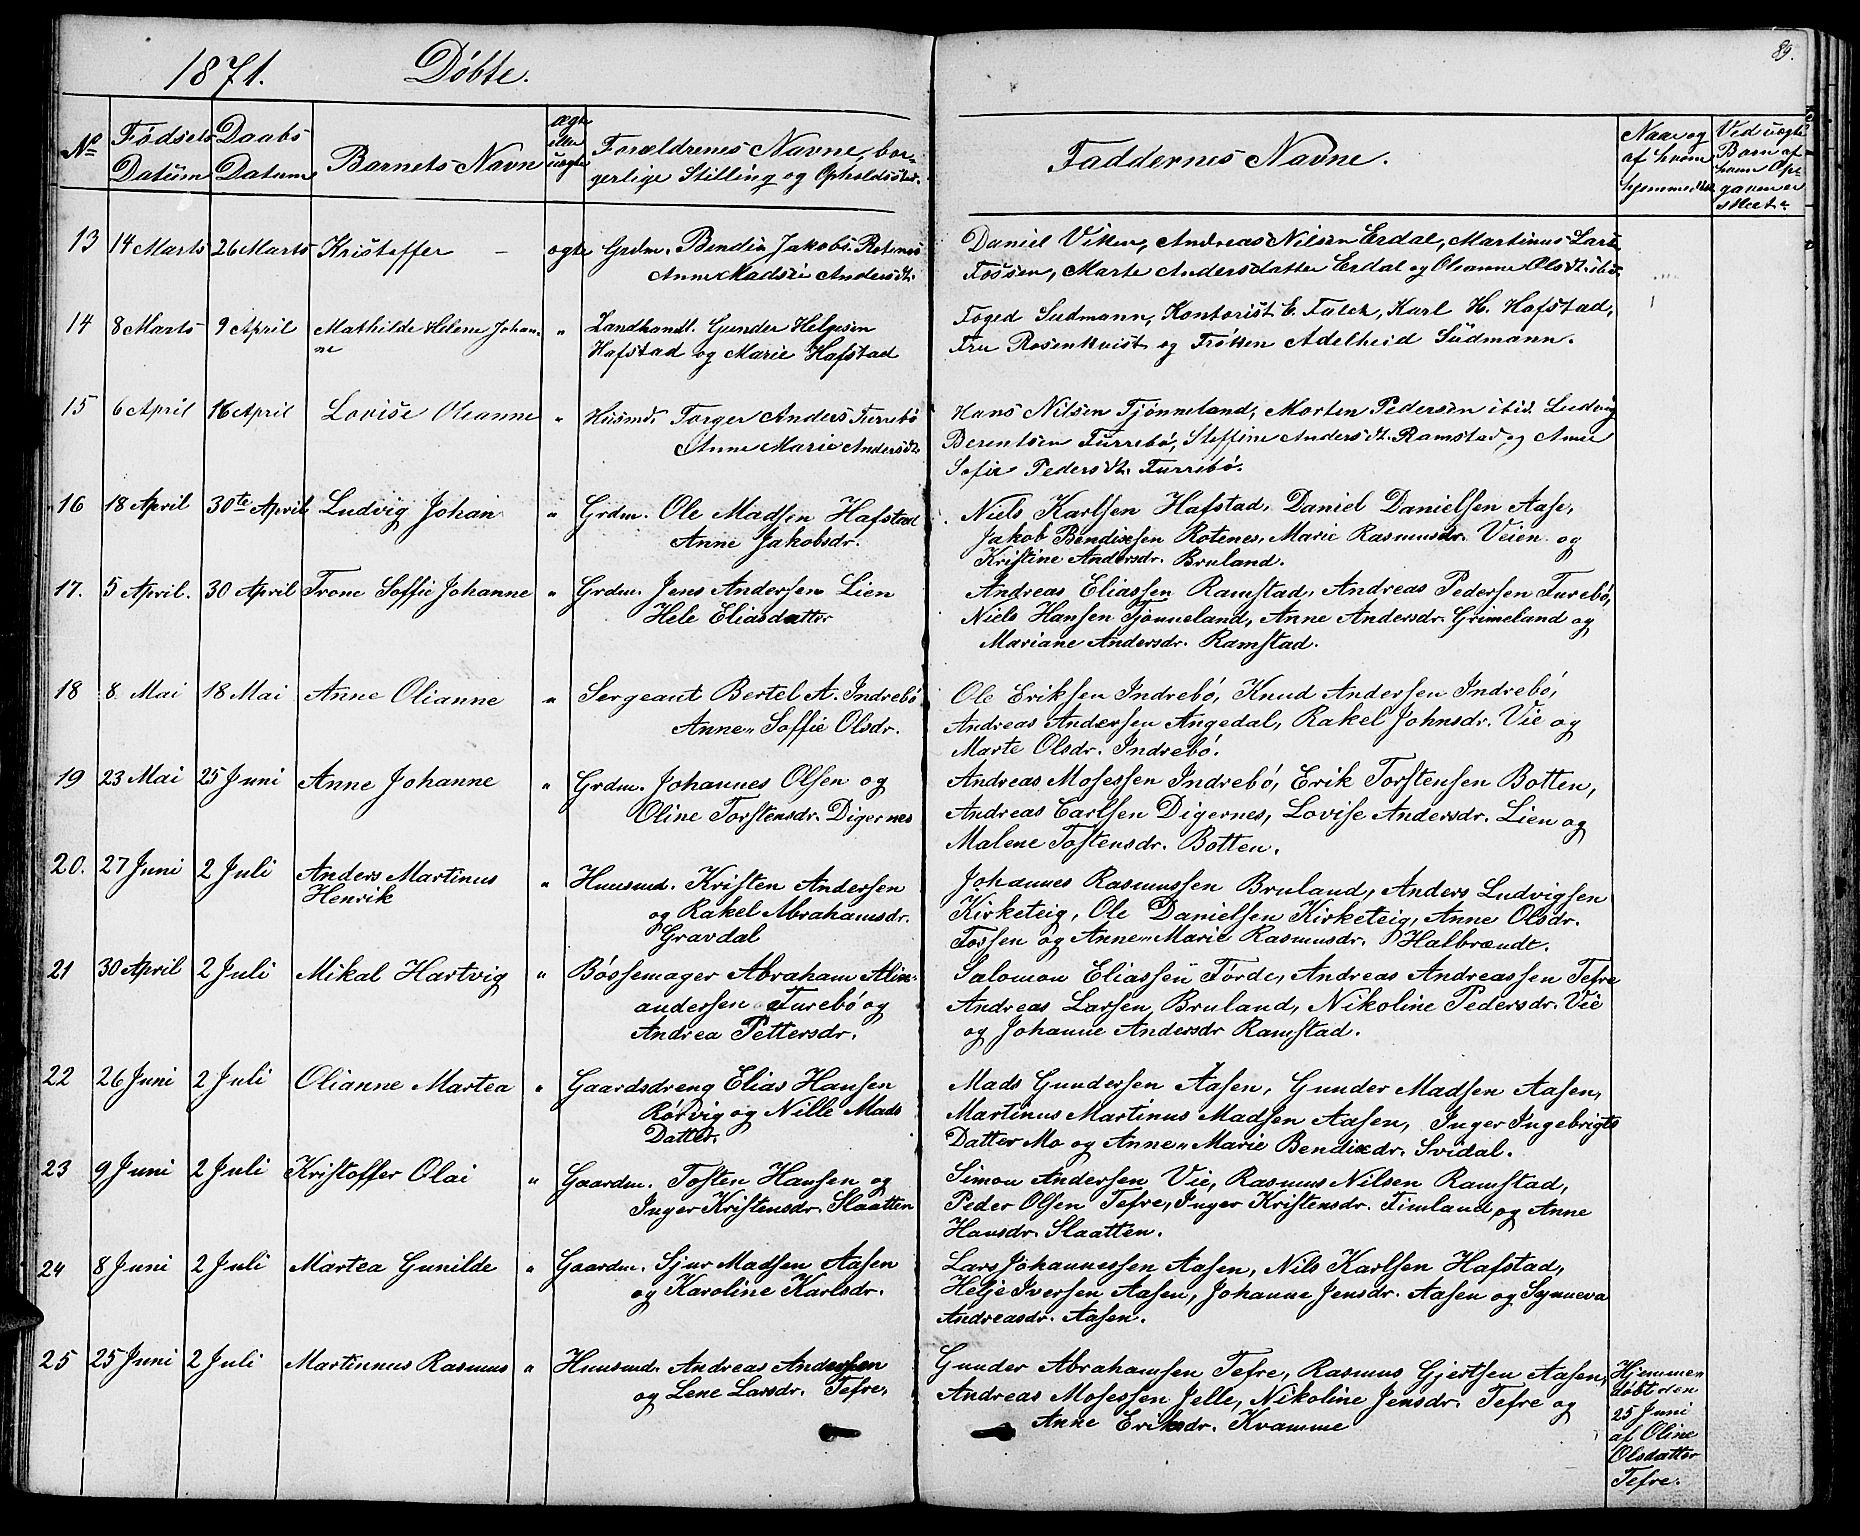 1871. Døbte.
89.
No
Fødsels Datum
Daabs Datum
Barnets Navn
ægte eller uægte
Forældrenes Navne, bor-
gerlige Stilling og Opholdssted.
Faddernes Navne.
Naar og af hvem hjemmedøbt
Ved uægte Børn af hvem Op-
gaven er skeet.
13 14 Marts 26 Marts Kristoffer - ægte Grdm. Bendix Jakobs. Rotenes
Anne Madsine Andersdt.
Daniel Viken, Andreas Nilsen Erdal, Martinus Lars.
Fossen, Marte Andersdatter Erdal og Olianne Olsdt. ibid
14 8 Marts 9 April Mathilde Helene Johan-
ne
" Landhandl. Gunder Helgesen
Hafstad og Marie Hafstad
Foged Sudmann, Kontorist E. Falck, Karl H. Hafstad,
Fru Rosenkvist og Frøken Adelheid Südmann.
15 6 April 16 April Lovise Oleanne " Husmd. Torger Anders. Furrebø
Anne Marie Andersdt.
Hans Nilsen Tjønneland, Morten Pedersen ibid. Ludvig
Berentsen Furrebø, Steffine Andersdt. Ramstad og Anne
Sofie Pedersdt. Furrebø.
16 18 April 30te April Ludvig Johan " Grdm. Ole Madsen Hafstad
Anne Jakobsdr.
Niels Karlsen Hafstad, Daniel Danielsen Aase,
Jakob Bendixsen Rotenes, Marie Rasmusdr. Veien og
Kristine Andersdr. Bruland.
17. 5 April. 30 April Trone Soffie Johanne " Grdm. Jens Andersen Lien
Hele Eliasdatter
Andreas Eliassen Ramstad, Andreas Pedersen Furebø,
Niels Hansen Tjønneland, Anne Andersdr. Grimeland og
Mariane Andersdr. Ramstad.
18 8 Mai 18 Mai Anne Olianne " Sergeant Bertel A. Indrebø
Anne Soffie Olsdr.
Ole Eriksen Indrebø, Knud Andersen Indrebø,
Andreas Andersen Angedal, Rakel Johnsdr. Vie og
Marte Olsdr. Indrebø.
19 23 Mai 25 Juni Anne Johanne " Grdm. Johannes Olsen og
Oline Torstensdr. Digernes
Andreas Mosessen Indrebø, Erik Torstensen Botten,
Andreas Carlsen Digernes, Lovise Andersdr. Lien og
Malene Tostensdr. Botten.
20. 27 Juni 2 Juli Anders Martinus
Henrik
" Huusmd. Kristen Andersen
og Rakel Abrahamsdr.
Gravdal
Johannes Rasmussen Bruland, Anders Ludvigsen
Kirketeig, Ole Danielsen Kirketeig, Anne Olsdr.
Fossen og Anne Marie Rasmusdr. Halbrændt.
21 30 April 2 Juli Mikal Hartvig " Bøssemager Abraham Alin-
andersen Furebø og
Andrea Pettersdr.
Salomon Eliassen Førde, Andreas Andreassen Tefre
Andreas Larsen Bruland, Nikoline Pedersdr. Vie
og Johanne Andersdr Ramstad.
22 26 Juni 2 Juli Olianne Martea " Gaardsdreng Elias Hansen
Rørvig og Nille Mads
Datter.
Mads Gundersen Aasen, Gunder Madsen Aasen,
Martinus Martinus Madsen Aasen, Inger Ingebrigts
Datter Mo og Anne Marie Bendixdr. Svidal.
23 9 Juni 2 Juli Kristoffer Olai " Gaardm. Tosten Hansen og
Inger Kristensdr. Slaatten
Simon Andersen Vie, Rasmus Nilsen Ramstad,
Peder Olsen Tefre, Inger Kristensdr. Fimland og Anne
Hansdr. Slaatten.
24 8 Juni 2 Juli Martea Gunilde " Gaardm. Sjur Madsen Aasen
og Karoline Karlsdr.
Lars Johannessen Aasen, Nils Karlsen Hafstad,
Helje Iversen Aasen, Johanne Jensdr. Aasen og Synneva
Andreasdr. Aasen.
25 25 Juni 2 Juli Martinnus Rasmus " Huusmd. Andreas Andersen
og Lene Larsdr. Tefre,
Gunder Abrahamsen Tefre, Rasmus Gjertsen Aasen,
Andreas Mosessen Jelle, Nikoline Jensdr. Tefre og
Anne Eriksdr. Kvamme
Hjemme-
døbt den
25 Juni
af Oline
Olsdatter
Tefre.